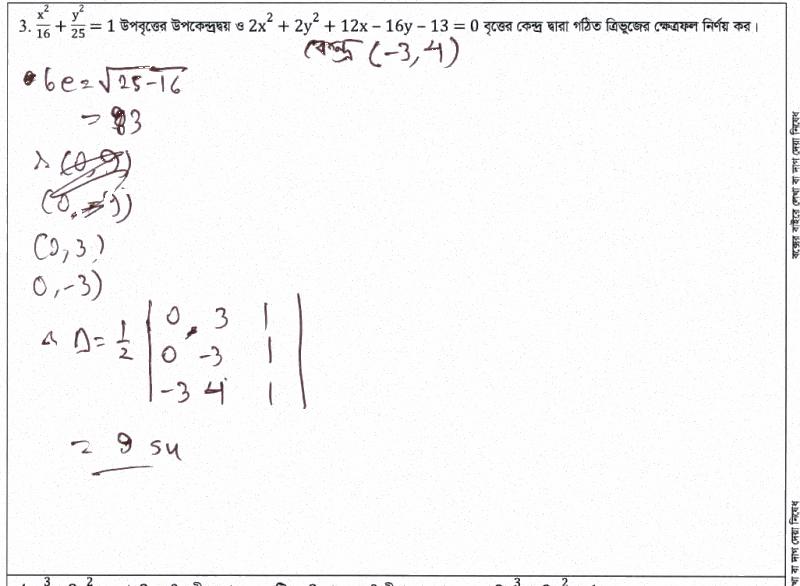 3. x²/16 + y²/25 = 1 উপবৃত্তের উপকেন্দ্রদ্বয় ও 2x² + 2y² + 12x − 16y − 13 = 0 বৃত্তের কেন্দ্র দ্বারা গঠিত ত্রিভুজের ক্ষেত্রফল নির্ণয় কর।
কেন্দ্র (-3, 4)
be = √25-16
= 3
(0, 3)
0, -3)
∴ Δ = 1/2 | 0 3 1
0 -3 1
-3 4 1 |
= 9 su
বক্সের বাইরে লেখা বা দাগ দেয়া নিষেধ
বা দাগ দেয়া নিষেধ